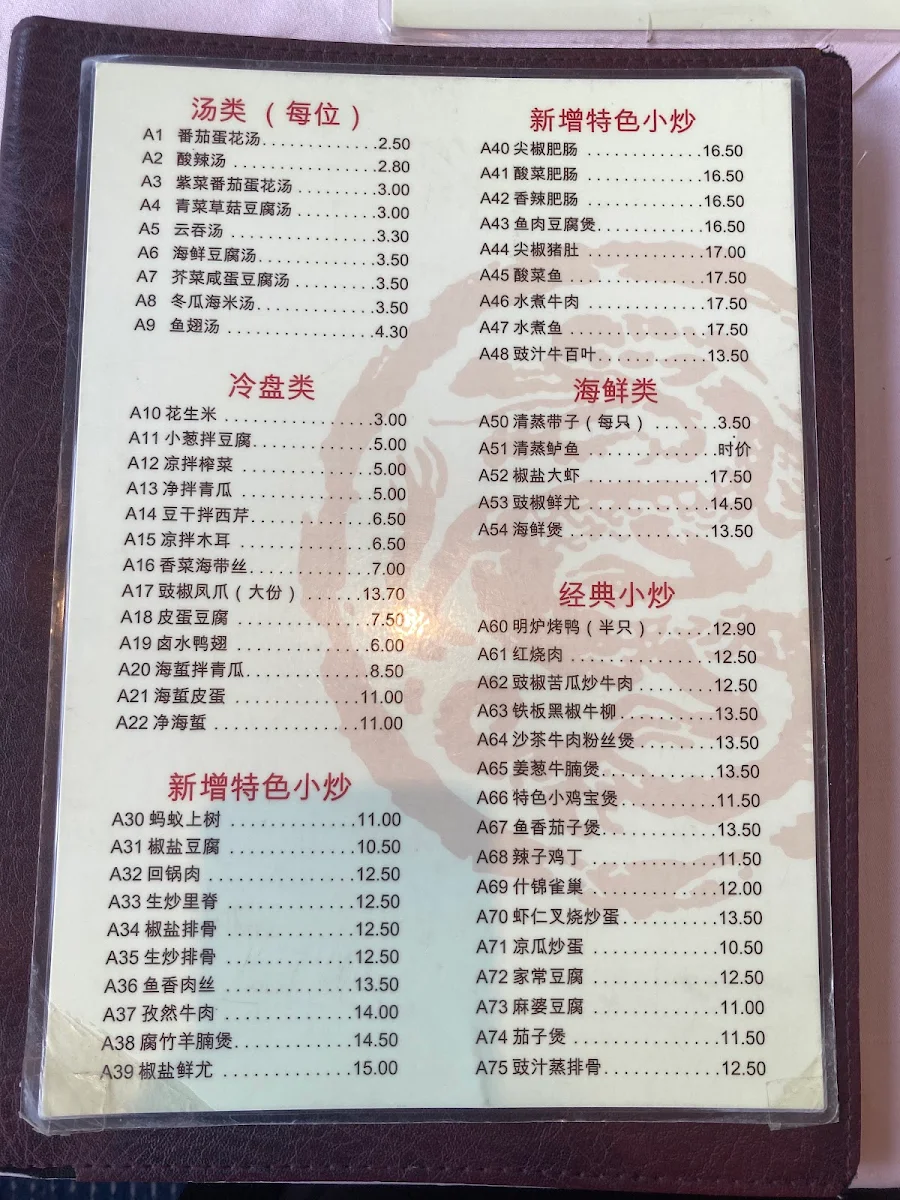 汤类（每位）
A1 番茄蛋花汤.............2.50
A2 酸辣汤.............2.80
A3 紫菜番茄蛋花汤.........3.00
A4 青菜草菇豆腐汤.........3.00
A5 云吞汤.............3.30
A6 海鲜豆腐汤.............3.50
A7 芥菜咸蛋豆腐汤.........3.50
A8 冬瓜海米汤.............3.50
A9 鱼翅汤.............4.30
冷盘类
A10 花生米.............3.00
A11 小葱拌豆腐.............5.00
A12 凉拌榨菜.............5.00
A13 净拌青瓜.............5.00
A14 豆干拌西芹.............6.50
A15 凉拌木耳.............6.50
A16 香菜海带丝.............7.00
A17 豉椒凤爪（大份）......13.70
A18 皮蛋豆腐.............7.50
A19 卤水鸭翅.............6.00
A20 海蜇拌青瓜.............8.50
A21 海蜇皮蛋.............11.00
A22 净海蜇.............11.00
新增特色小炒
A30 蚂蚁上树.............11.00
A31 椒盐豆腐.............10.50
A32 回锅肉.............12.50
A33 生炒里脊.............12.50
A34 椒盐排骨.............12.50
A35 生炒排骨.............12.50
A36 鱼香肉丝.............13.50
A37 孜然牛肉.............14.00
A38 腐竹羊腩煲.............14.50
A39 椒盐鲜尤.............15.00
新增特色小炒
A40 尖椒肥肠.............16.50
A41 酸菜肥肠.............16.50
A42 香辣肥肠.............16.50
A43 鱼肉豆腐煲.............16.50
A44 尖椒猪肚.............17.00
A45 酸菜鱼.............17.50
A46 水煮牛肉.............17.50
A47 水煮鱼.............17.50
A48 豉汁牛百叶.............13.50
海鲜类
A50 清蒸带子（每只）.......3.50
A51 清蒸鲈鱼.............时价
A52 椒盐大虾.............17.50
A53 豉椒鲜尤.............14.50
A54 海鲜煲.............13.50
经典小炒
A60 明炉烤鸭（半只）......12.90
A61 红烧肉.............12.50
A62 豉椒苦瓜炒牛肉........12.50
A63 铁板黑椒牛柳..........13.50
A64 沙茶牛肉粉丝煲........13.50
A65 姜葱牛腩煲.............13.50
A66 特色小鸡宝煲..........11.50
A67 鱼香茄子煲.............13.50
A68 辣子鸡丁.............11.50
A69 什锦雀巢.............12.00
A70 虾仁叉烧炒蛋..........13.50
A71 凉瓜炒蛋.............10.50
A72 家常豆腐.............12.50
A73 麻婆豆腐.............11.00
A74 茄子煲.............11.50
A75 豉汁蒸排骨............12.50